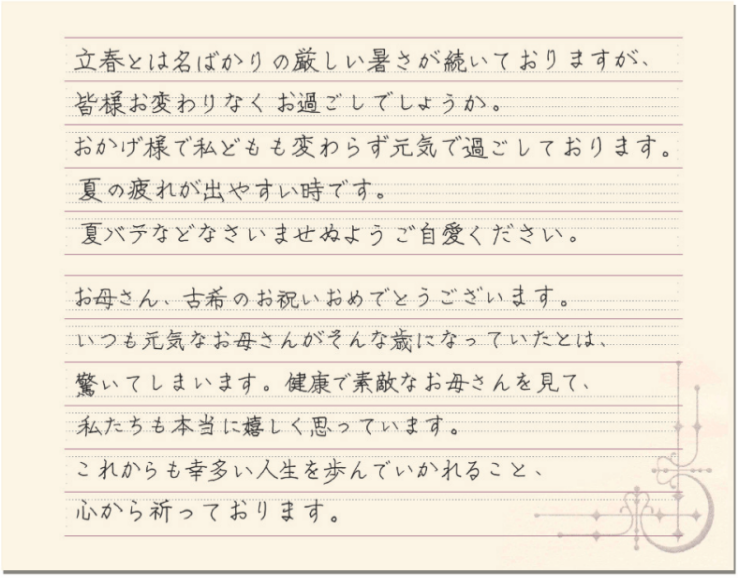 立春とは名ばかりの厳しい暑さが続いておりますが、
皆様お変わりなくお過ごしでしょうか。
おかげ様で私どもも変わらず元気で過ごしております。
夏の疲れが出やすい時です。
夏バテなどなさいませぬようご自愛ください。
お母さん、古希のお祝いおめでとうございます。
いつも元気なお母さんがそんな歳になっていたとは、
驚いてしまいます。健康で素敵なお母さんを見て、
私たちも本当に嬉しく思っています。
これからも幸多い人生を歩んでいかれること、
心から祈っております。